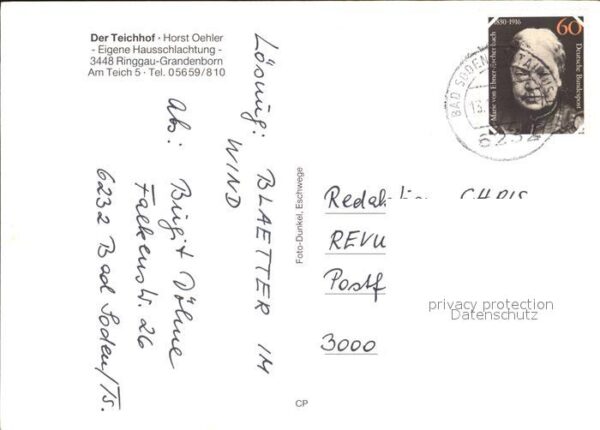 Der Teichhof · Horst Oehler
- Eigene Hausschlachtung -
3448 Ringgau-Grandenborn
Am Teich 5 · Tel. 05659/810
Lösung: BLAETTER IM
WIND
Abs: Birgit Döhne
Falkenstr. 26
6232 Bad Soden/Ts.
Foto-Dunkel, Eschwege
CP
1830-1916
60
Marie von Ebner-Eschenbach
Deutsche Bundespost
BAD SODEN
13.
6232
CHRIS
REVU
Postf
3000
privacy protection
Datenschutz